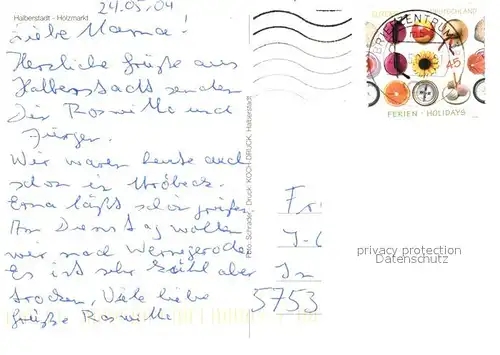 24.05.04
Halberstadt - Holzmarkt
Liebe Mama!
Herzliche Grüße aus
Halberstadt senden
Dir Roswitha und
Jürgen.
Wir waren heute auch
schon in Ströbeck.
Erna läßt schön grüßen
Am Dienstag wollen
wir nach Wernigerode.
Es ist sehr kühl aber
trocken, Viele liebe
Grüße Roswitha
Foto Schrader, Druck KOCH-DRUCK, Halberstadt
DEUTSCHLAND
BRIEFZENTRUM
45
FERIEN · HOLIDAYS
Fr
In
5753
privacy protection
Datenschutz